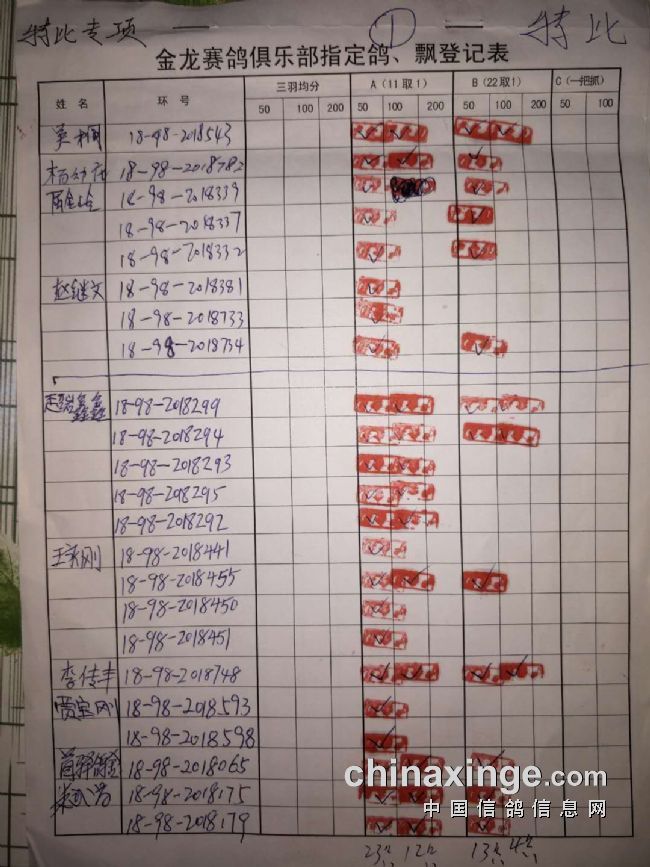 特比专项 ① 特比
金龙赛鸽俱乐部指定鸽、飘登记表
姓名 环号 三羽均分 A（11取1） B（22取1） C（一把抓）
50 100 200 50 100 200 50 100 200 50 100
18-98-2018543
18-98-2018782
18-98-2018339
18-98-2018337
18-98-2018332
赵继文 18-98-2018381
18-98-2018733
18-98-2018734
18-98-2018299
18-98-2018294
18-98-2018293
18-98-2018295
18-98-2018292
18-98-2018441
18-98-2018455
18-98-2018450
18-98-2018451
李传丰 18-98-2018748
贾宝刚 18-98-2018593
18-98-2018598
18-98-2018065
18-98-2018175
18-98-2018179
chinaxinge.com
中国信鸽信息网